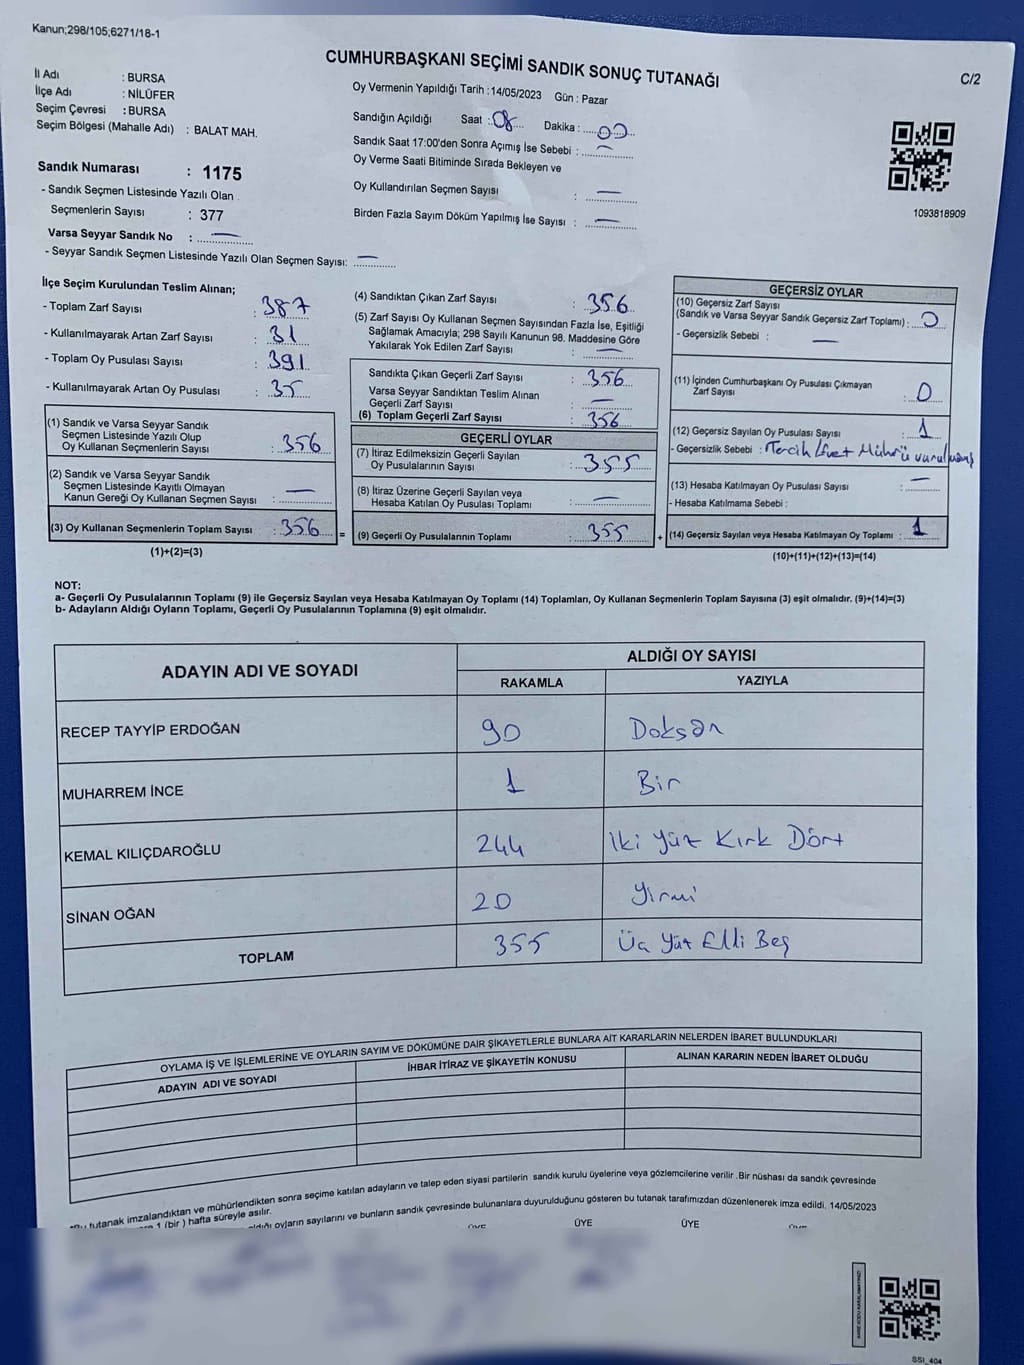 Kanun;298/105;6271/18-1
CUMHURBAŞKANI SEÇİMİ SANDIK SONUÇ TUTANAĞI
C/2
İl Adı : BURSA
İlçe Adı : NİLÜFER
Seçim Çevresi : BURSA
Seçim Bölgesi (Mahalle Adı) : BALAT MAH.
Oy Vermenin Yapıldığı Tarih : 14/05/2023 Gün : Pazar
Sandığın Açıldığı Saat : 08 Dakika : 00
Sandık Saat 17:00'den Sonra Açımış İse Sebebi : —
Oy Verme Saati Bitiminde Sırada Bekleyen ve
Oy Kullandırılan Seçmen Sayısı : —
Birden Fazla Sayım Döküm Yapılmış İse Sayısı : —
1093818909
Sandık Numarası : 1175
- Sandık Seçmen Listesinde Yazılı Olan
Seçmenlerin Sayısı : 377
Varsa Seyyar Sandık No : —
- Seyyar Sandık Seçmen Listesinde Yazılı Olan Seçmen Sayısı: —
İlçe Seçim Kurulundan Teslim Alınan;
- Toplam Zarf Sayısı : 387
- Kullanılmayarak Artan Zarf Sayısı : 31
- Toplam Oy Pusulası Sayısı : 391
- Kullanılmayarak Artan Oy Pusulası : 35
(1) Sandık ve Varsa Seyyar Sandık
Seçmen Listesinde Yazılı Olup
Oy Kullanan Seçmenlerin Sayısı : 356
(2) Sandık ve Varsa Seyyar Sandık
Seçmen Listesinde Kayıtlı Olmayan
Kanun Gereği Oy Kullanan Seçmen Sayısı : —
(3) Oy Kullanan Seçmenlerin Toplam Sayısı : 356 =
(1)+(2)=(3)
(4) Sandıktan Çıkan Zarf Sayısı : 356
(5) Zarf Sayısı Oy Kullanan Seçmen Sayısından Fazla İse, Eşitliği
Sağlamak Amacıyla; 298 Sayılı Kanunun 98. Maddesine Göre
Yakılarak Yok Edilen Zarf Sayısı : —
Sandıkta Çıkan Geçerli Zarf Sayısı : 356
Varsa Seyyar Sandıktan Teslim Alınan
Geçerli Zarf Sayısı : —
(6) Toplam Geçerli Zarf Sayısı : 356
GEÇERLİ OYLAR
(7) İtiraz Edilmeksizin Geçerli Sayılan
Oy Pusulalarının Sayısı : 355
(8) İtiraz Üzerine Geçerli Sayılan veya
Hesaba Katılan Oy Pusulası Toplamı : —
(9) Geçerli Oy Pusulalarının Toplamı : 355 +
GEÇERSİZ OYLAR
(10) Geçersiz Zarf Sayısı
(Sandık ve Varsa Seyyar Sandık Geçersiz Zarf Toplamı) : 0
- Geçersizlik Sebebi : —
(11) İçinden Cumhurbaşkanı Oy Pusulası Çıkmayan
Zarf Sayısı : 0
(12) Geçersiz Sayılan Oy Pusulası Sayısı : 1
- Geçersizlik Sebebi : Tercih Evet Mührü
(13) Hesaba Katılmayan Oy Pusulası Sayısı : —
- Hesaba Katılmama Sebebi :
(14) Geçersiz Sayılan veya Hesaba Katılmayan Oy Toplamı : 1
(10)+(11)+(12)+(13)=(14)
NOT:
a- Geçerli Oy Pusulalarının Toplamı (9) ile Geçersiz Sayılan veya Hesaba Katılmayan Oy Toplamı (14) Toplamları, Oy Kullanan Seçmenlerin Toplam Sayısına (3) eşit olmalıdır. (9)+(14)=(3)
b- Adayların Aldığı Oyların Toplamı, Geçerli Oy Pusulalarının Toplamına (9) eşit olmalıdır.
ADAYIN ADI VE SOYADI
ALDIĞI OY SAYISI
RAKAMLA YAZIYLA
RECEP TAYYİP ERDOĞAN 90 Doksan
MUHARREM İNCE 1 Bir
KEMAL KILIÇDAROĞLU 244 İki Yüz Kırk Dört
SİNAN OĞAN 20 Yirmi
TOPLAM 355 Üç Yüz Elli Beş
OYLAMA İŞ VE İŞLEMLERİNE VE OYLARIN SAYIM VE DÖKÜMÜNE DAİR ŞİKAYETLERLE BUNLARA AİT KARARLARIN NELERDEN İBARET BULUNDUKLARI
ADAYIN ADI VE SOYADI İHBAR İTİRAZ VE ŞİKAYETİN KONUSU ALINAN KARARIN NEDEN İBARET OLDUĞU
Bu tutanak imzalandıktan ve mühürlendikten sonra seçime katılan adayların ve talep eden siyasi partilerin sandık kurulu üyelerine veya gözlemcilerine verilir .Bir nüshası da sandık çevresinde
1 (bir ) hafta süreyle asılır.
oyların sayılarını ve bunların sandık çevresinde bulunanlara duyurulduğunu gösteren bu tutanak tarafımızdan düzenlenerek imza edildi. 14/05/2023
ÜYE ÜYE ÜYE
SSI_404